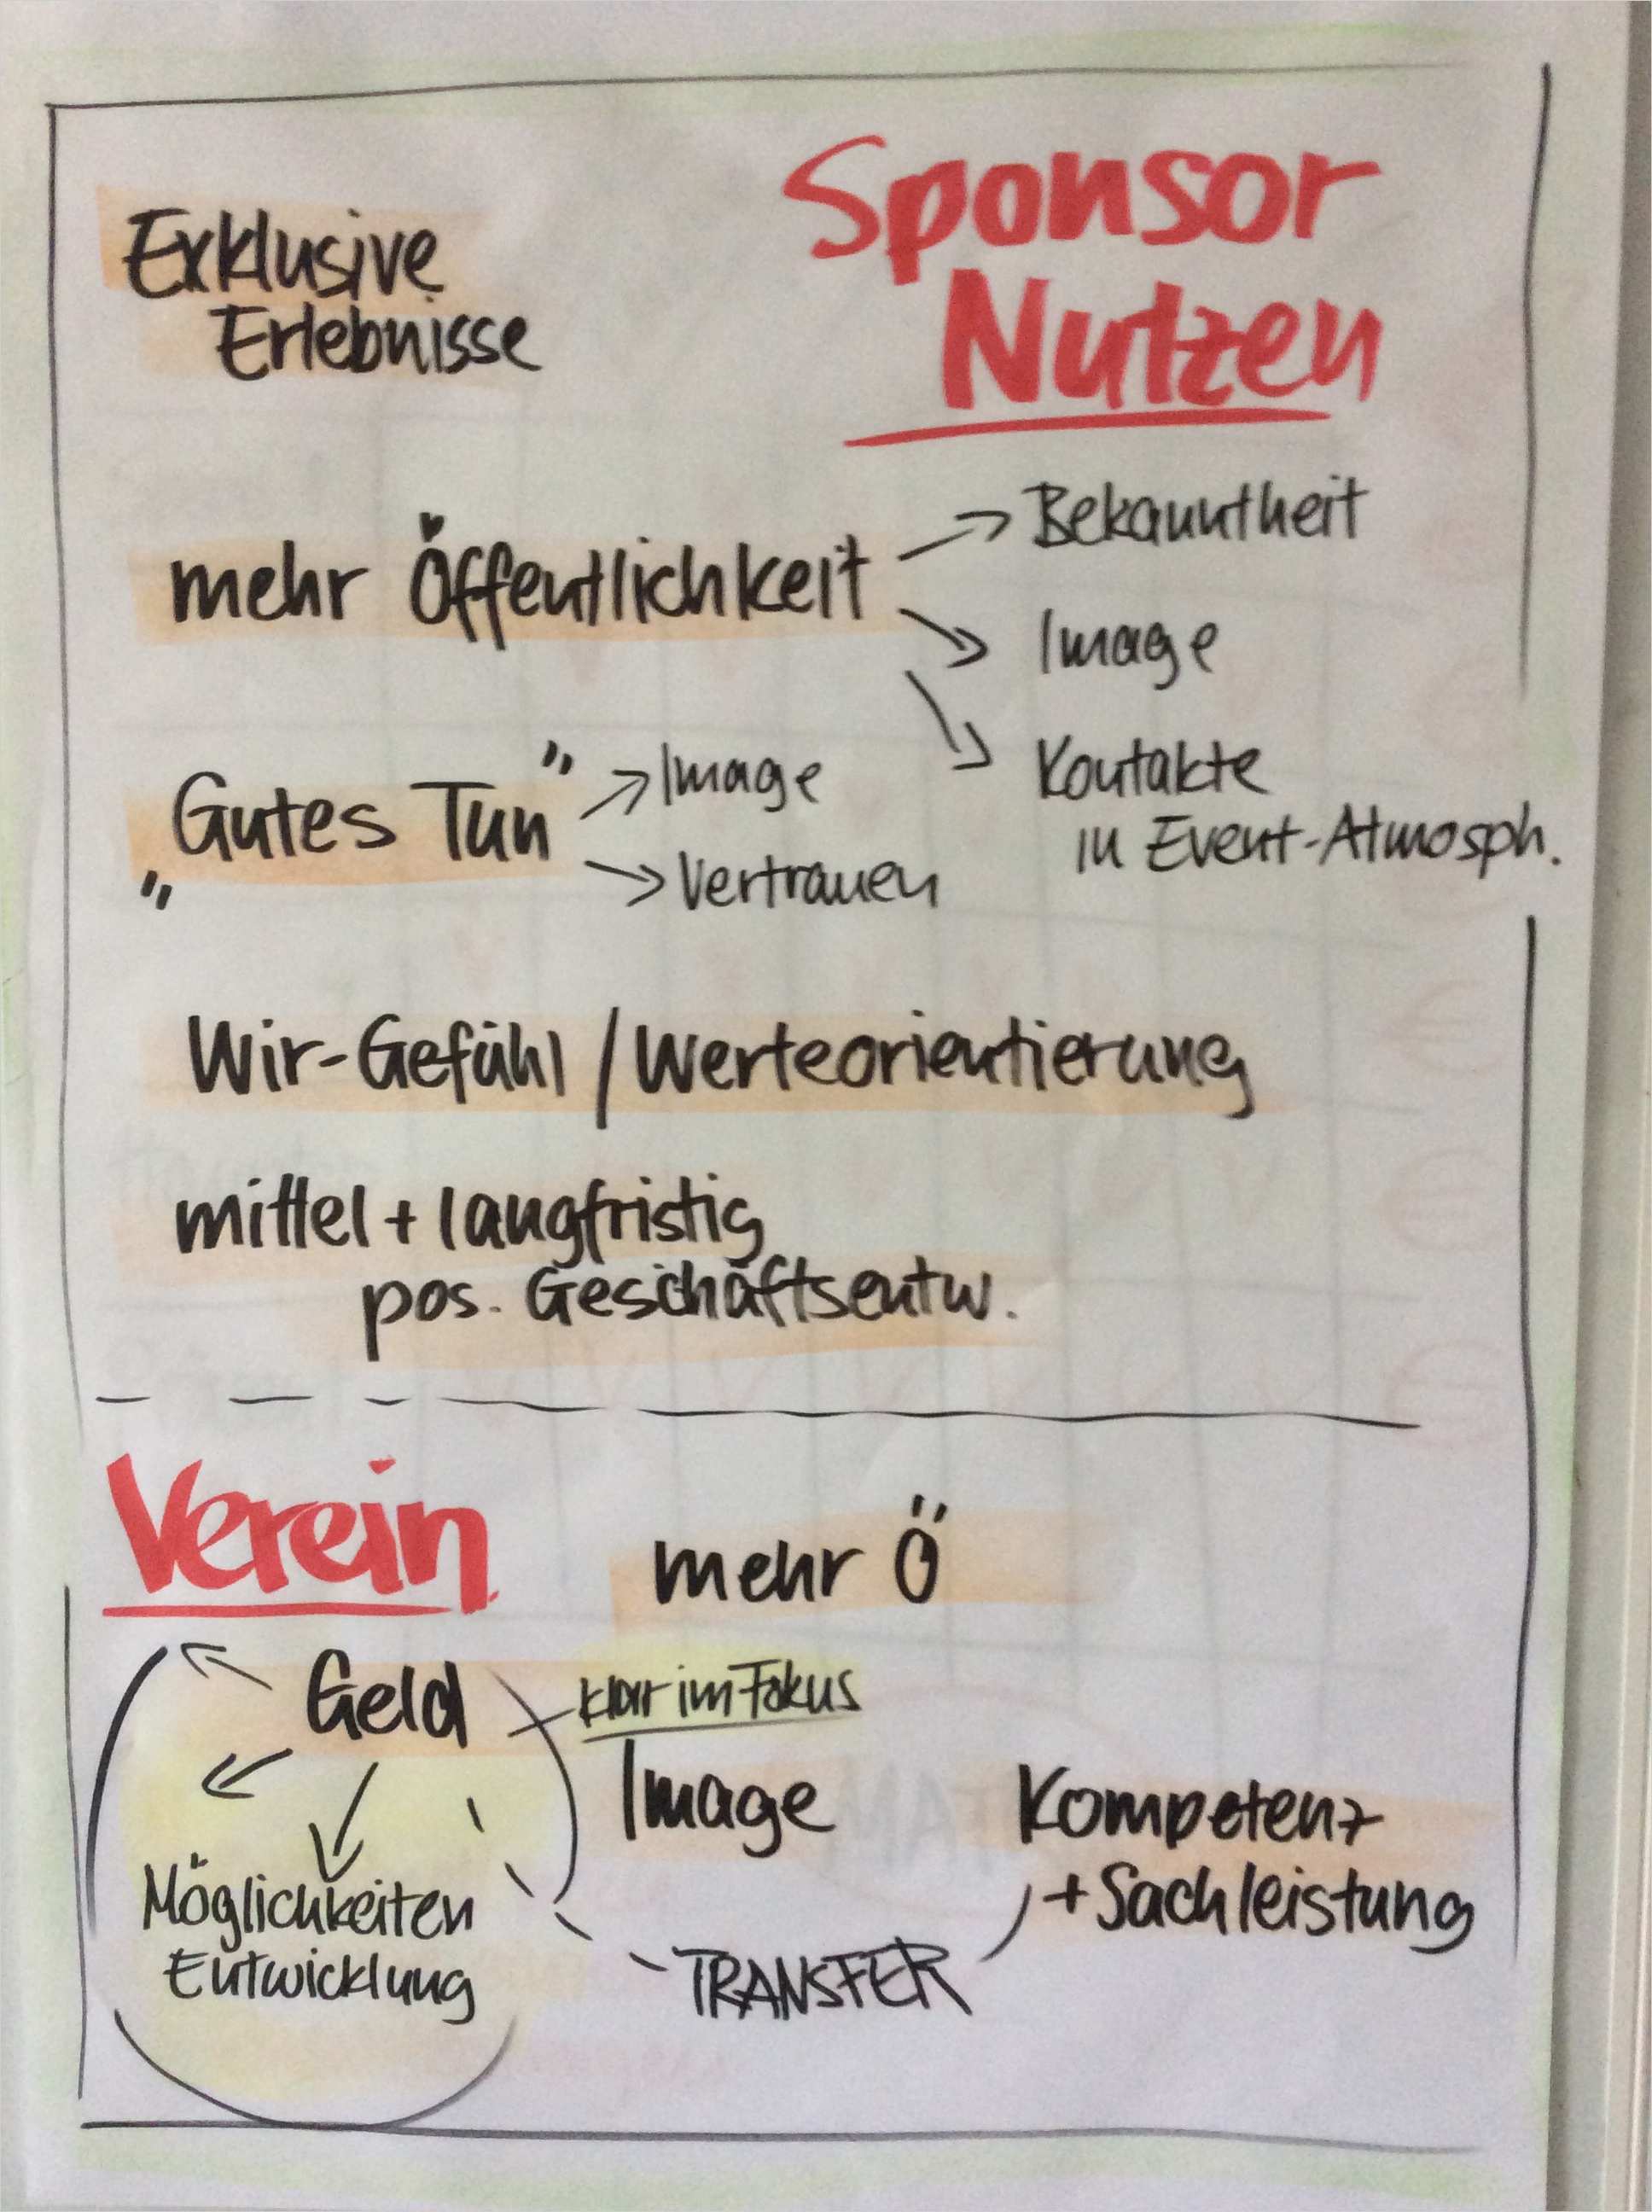 Sponsor
Nutzen
Exklusive
Erlebnisse
mehr Öffentlichkeit
→ Bekanntheit
→ Image
→ Kontakte
in Event-Atmosph.
„Gutes Tun"
→ Image
→ Vertrauen
Wir-Gefühl / Werteorientierung
mittel + langfristig
pos. Geschäftsentw.
Verein
mehr Ö
Geld
klar im Fokus
Image
Kompetenz
+ Sachleistung
Möglichkeiten
Entwicklung
TRANSFER